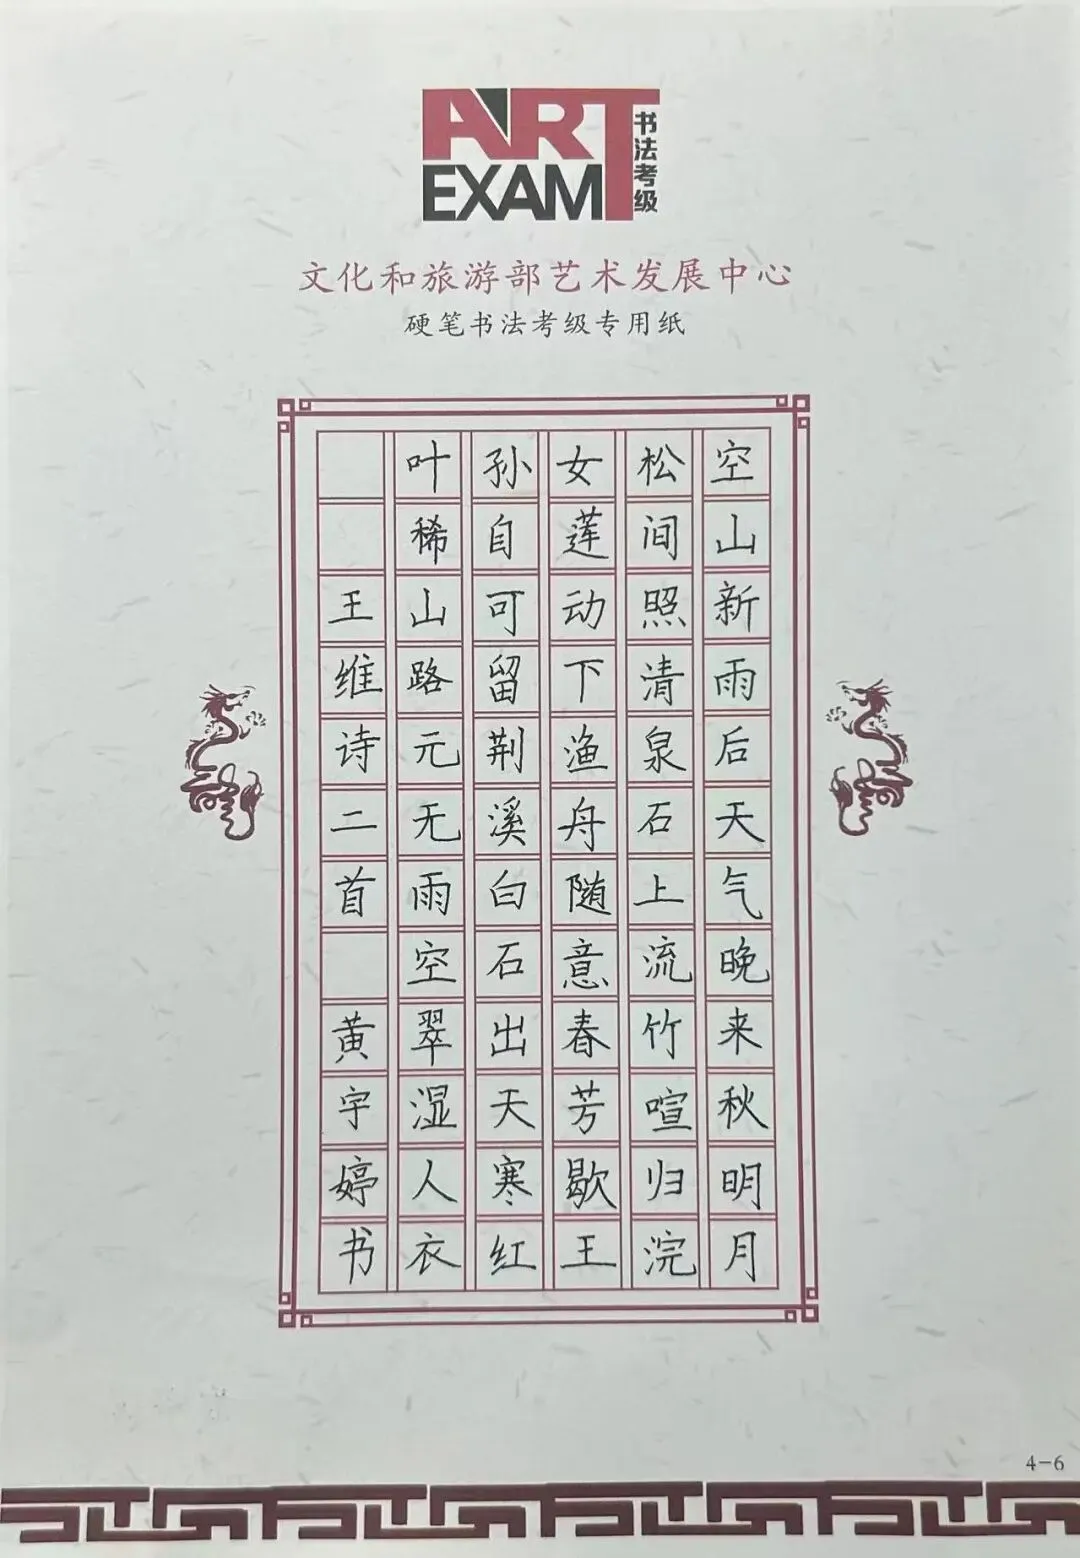 ART
EXAM
书法考级
文化和旅游部艺术发展中心
硬笔书法考级专用纸
空山新雨后天气晚来秋明月
松间照清泉石上流竹喧归浣
女莲动下渔舟随意春芳歇王
孙自可留荆溪白石出天寒红
叶稀山路元无雨空翠湿人衣
王维诗二首 黄宇婷书
4-6